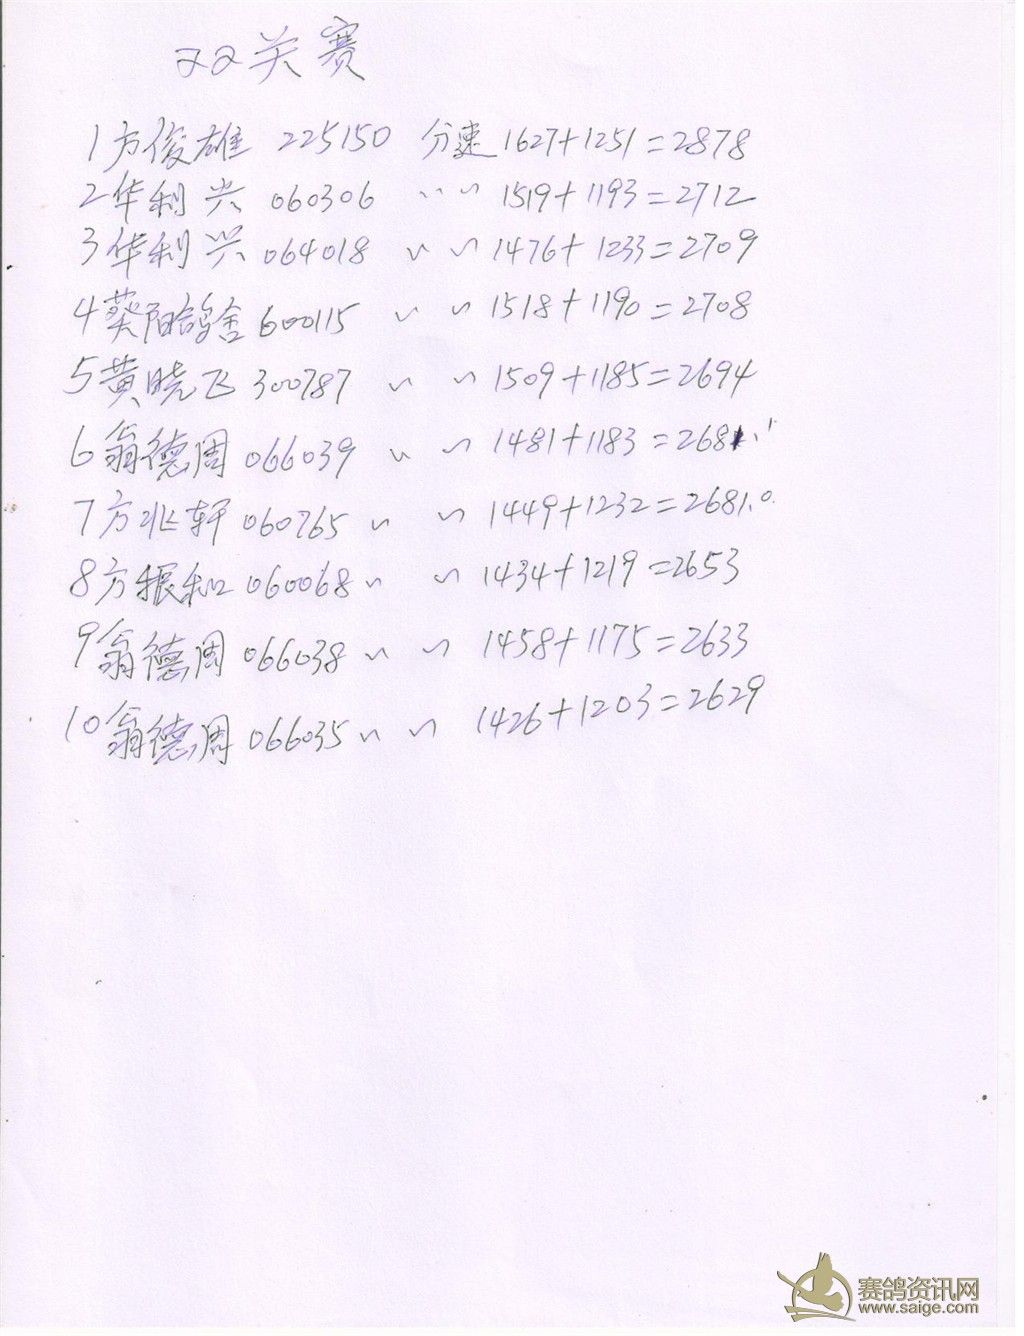 双关赛
1方俊雄 225150 分速1627+1251=2878
2华利兴 060306 〃 〃 1519+1193=2712
3华利兴 064018 〃 〃 1476+1233=2709
4葵阳鸽舍 600115 〃 〃 1518+1190=2708
5黄晓飞 300787 〃 〃 1509+1185=2694
6翁德周 066039 〃 〃 1481+1183=2681.1
7方兆轩 060765 〃 〃 1449+1232=2681.0
8方振和 060068 〃 〃 1434+1219=2653
9翁德周 066038 〃 〃 1458+1175=2633
10翁德周 066035 〃 〃 1426+1203=2629
赛鸽资讯网
www.saige.com